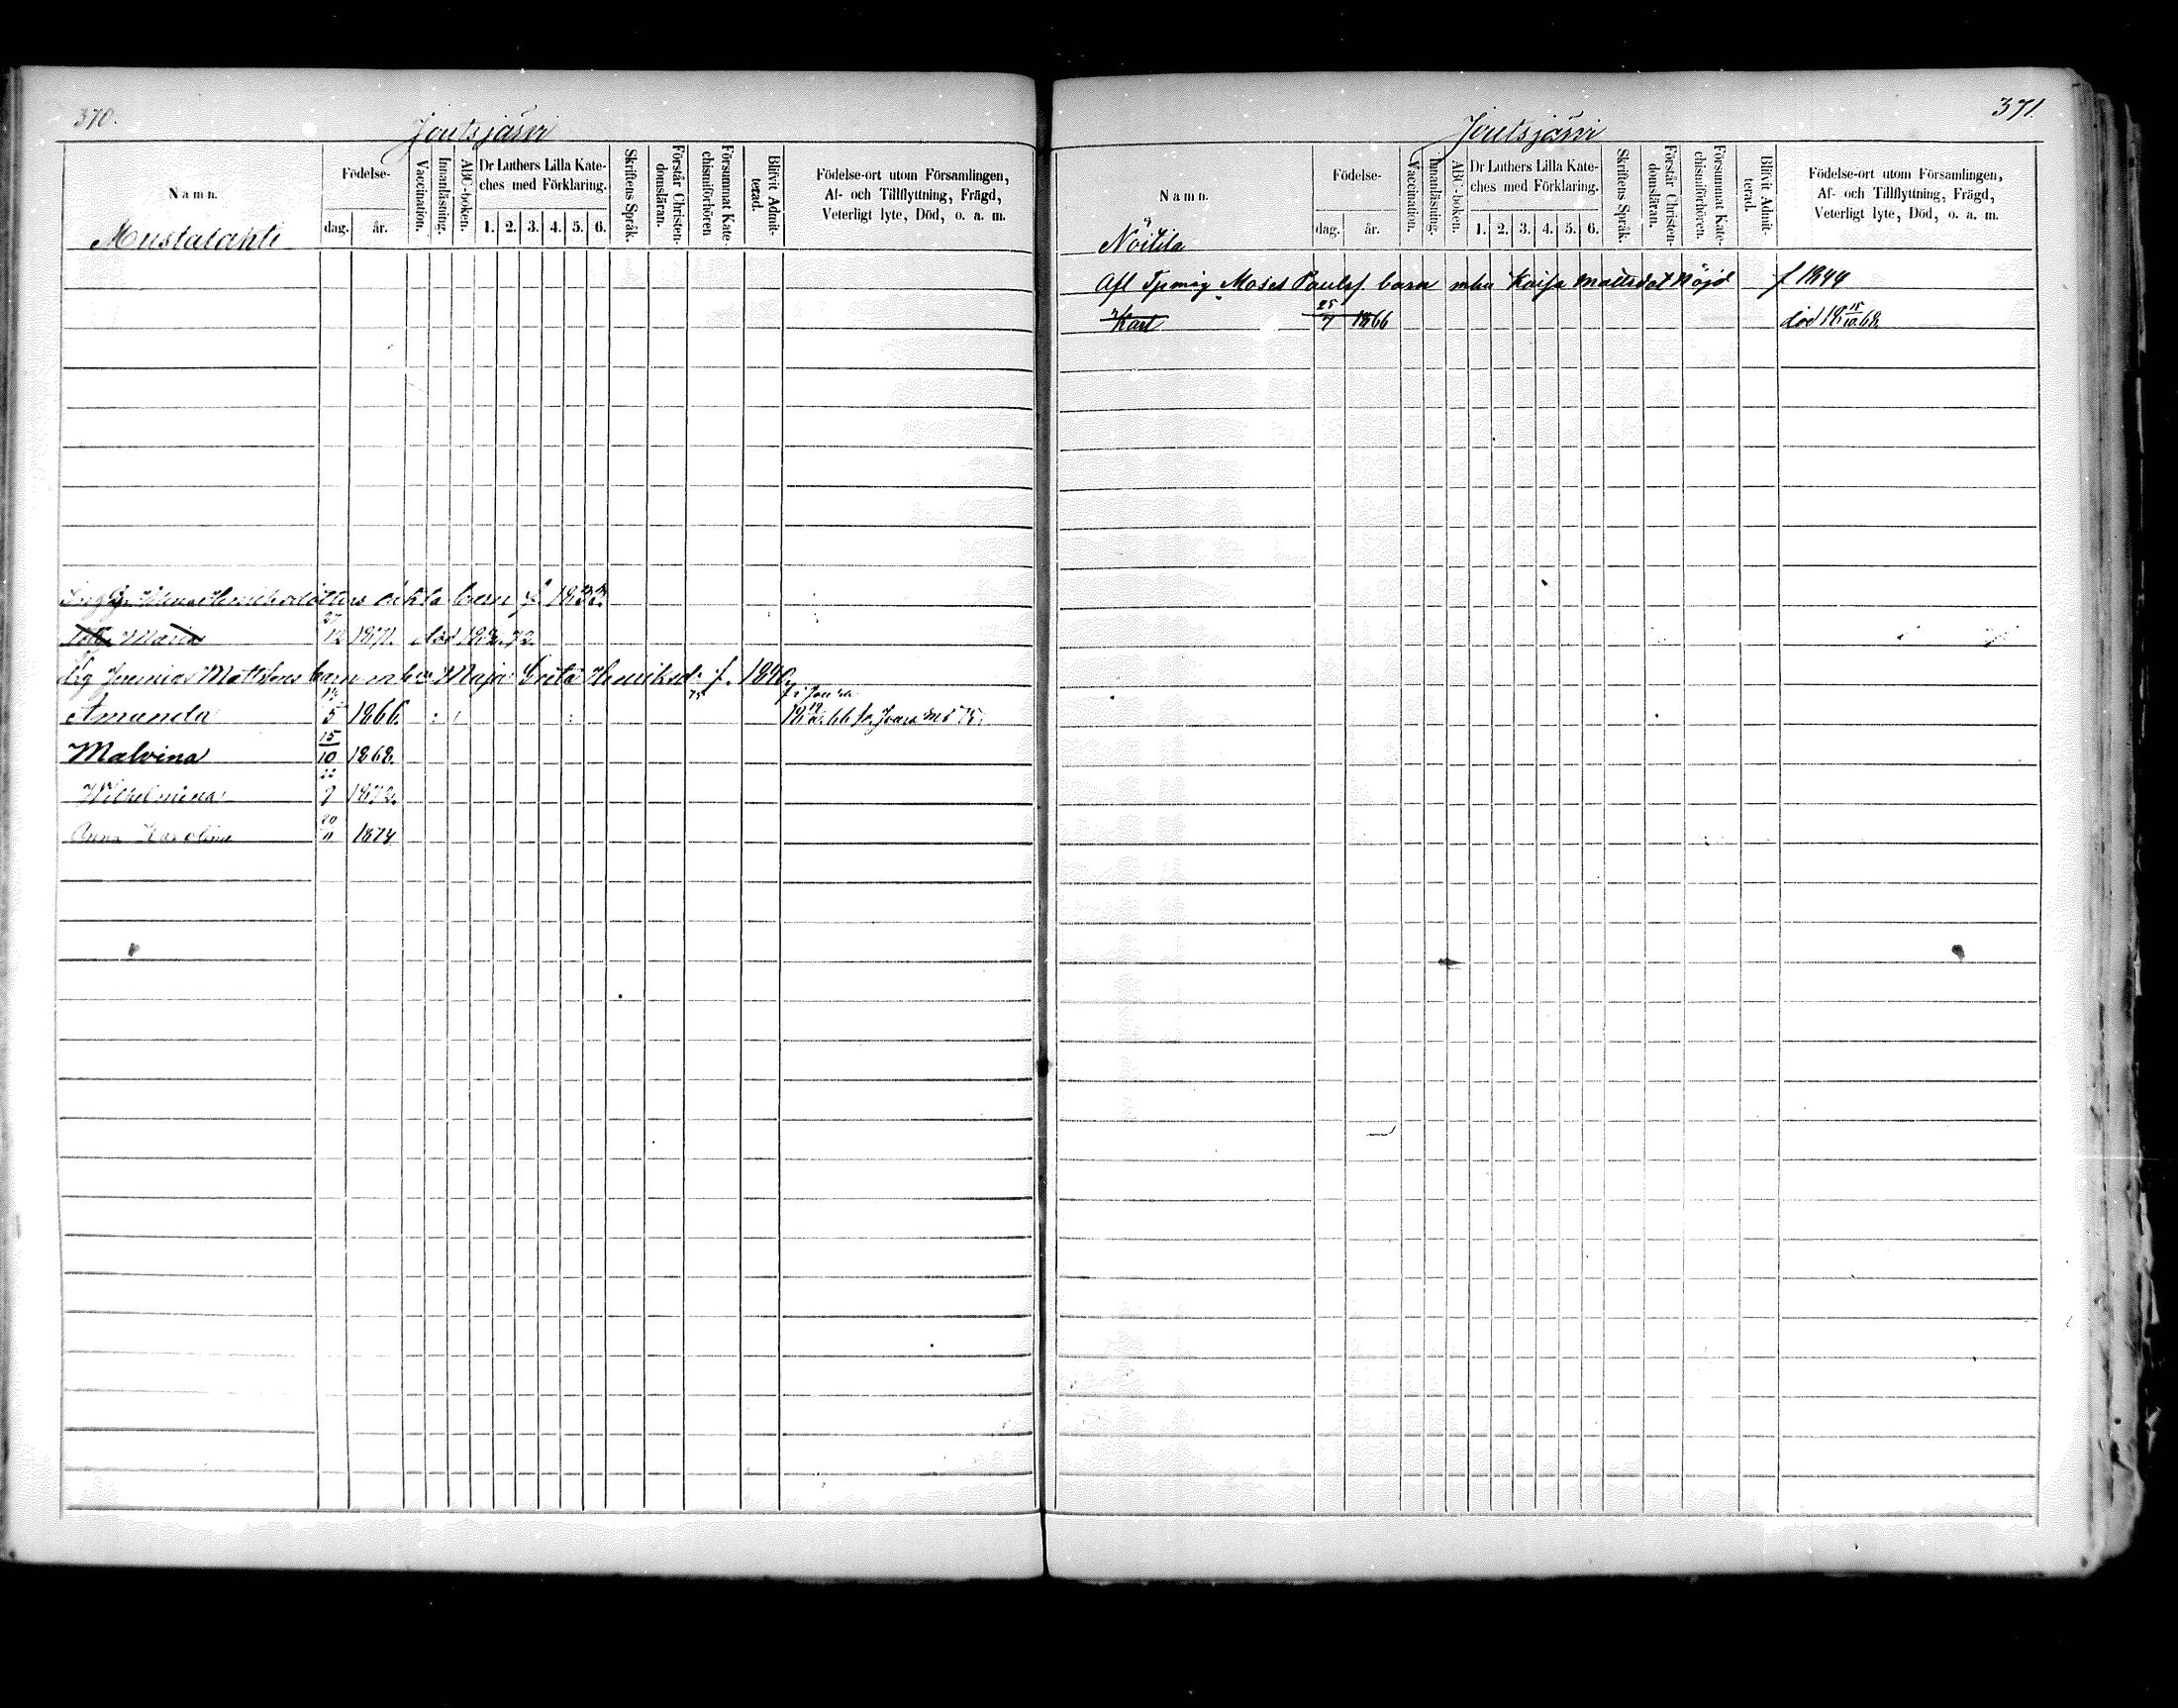 370.
Joutsjärvi
Namn.
Födelse-
dag. år.
Vaccination.
Innanläsning.
ABC-boken.
Dr Luthers Lilla Kate-
ches med Förklaring.
1. 2. 3. 4. 5. 6.
Skriftens Språk.
Förstår Christen-
domsläran.
Försummat Kate-
chismiförhören
Blifvit Admit-
terad.
Födelse-ort utom Församlingen,
Af- och Tillflyttning, Frägd,
Veterligt lyte, Död, o. a. m.
Mustalahti
Henriksdotters oäkta barn f
Maria 27 12 1871. död
Jeremias Mattsons barn Maja Greta Henriksd. f. 1840.
Amanda 5 1866.
Malvina 15 10 1868.
Wilhelmina 22 9 1872.
Anna Karolina 20 11 1874
371.
Joutsjärvi
Namn.
Födelse-
dag. år.
Vaccination.
Innanläsning.
ABC-boken.
Dr Luthers Lilla Kate-
ches med Förklaring.
1. 2. 3. 4. 5. 6.
Skriftens Språk.
Förstår Christen-
domsläran.
Försummat Kate-
chismiförhören.
Blifvit Admit-
terad.
Födelse-ort utom Församlingen,
Af- och Tillflyttning, Frägd,
Veterligt lyte, Död, o. a. m.
Afl Moses Paulsf. barn Kaisa Mattsdot Nöjd f 1844
Karl 25 7 1866 död 18 15 10 68.